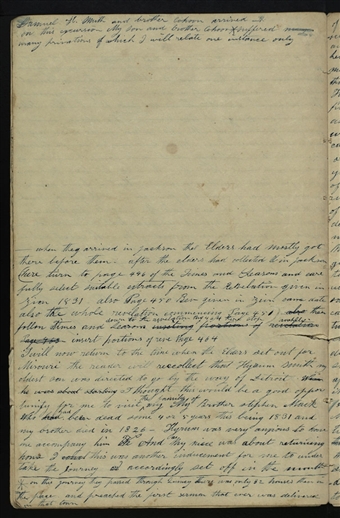 Samuel H. Smith and brother Cahoon arrived
on this excursion My Son and brother Cahoon suffered
many privations of which I will relate one instance only
— when they arrived in Jackson that Elders had mostly got
there before them — after the elders had collected to in Jackson
Here turn to page 446 of the Times and Seasons and care
fully select suitable extracts from the Revelation given in
Zion 1831 also Page 450 Rev given in Zion
also the whole revelation commencing Page 451)
follow Times and Seasons revelation
insert portions of rev Page 464
I will now return to the time when the Elders set out for
Missouri the reader will recollect that Hyrum Smith my
oldest son was directed to go by the way of Detroit
he was about starting I thought this would be a good oppor
tunity for me to visit the family of My Brother Stephen Mack
who had been dead some 4 or 5 years this being 1831 and
my brother died in 1826 — Hyrum was very anxious to have
me accompany him And as my niece was about returning
home I this was another inducement for me to under
take the journey accordingly set off in the
on this journey they passed through where there was only 2 houses then in
the place and preached the first sermon that ever was delivered
in that town